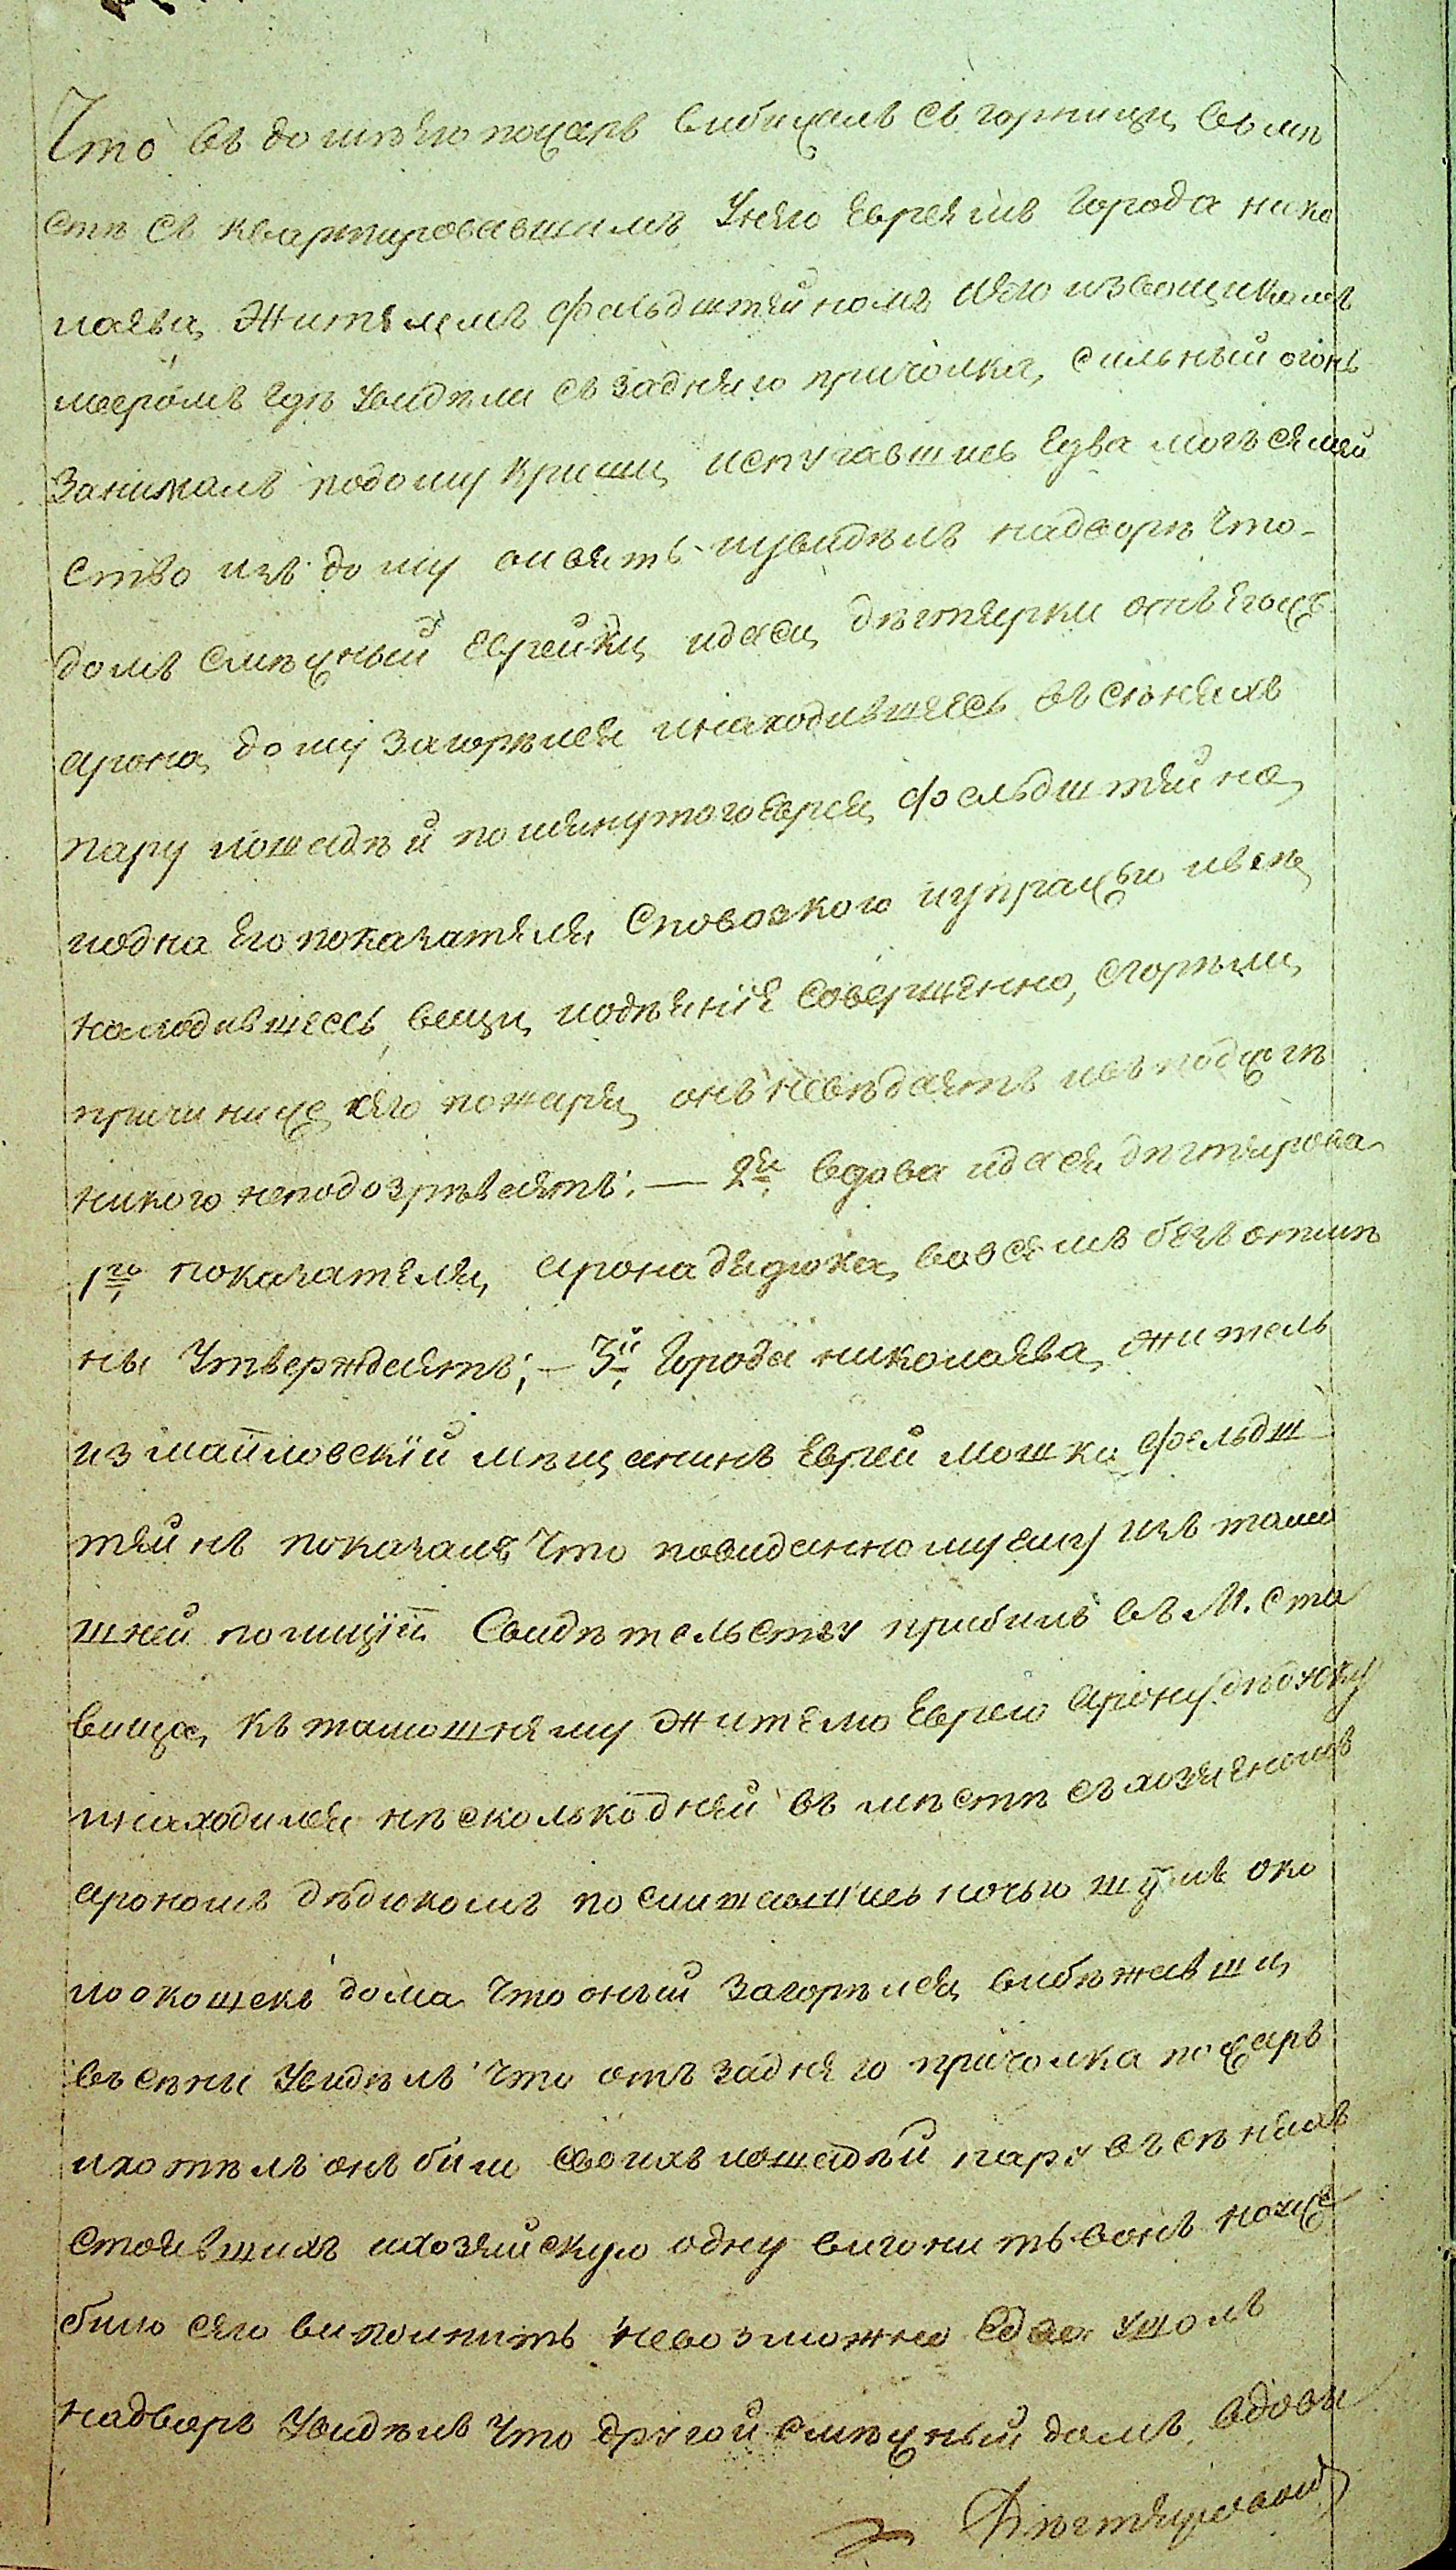 Что въ домѣ его пожаръ вибижалъ съ горници вьмѣ
стѣ съ квартировавшимъ Унего Евреямъ Города нико
лаява Жителемъ фельдштейномъ иего извощикомъ
меромъ гдѣ увидѣли съ заднего причолка, сильный огонь
занималъ подому криши испугавшись Едва могъ сямей
ство изъ дому спасать иувидѣлъ надворѣ Что
домъ смѣжный Еврейки идеси дѣгтярки отъ Егожъ
арона дому загорѣлся инаходившееся въ сѣняхъ
пару лошадѣй помянутого Еврея фельдштейна
иодна Его показателя споводкого иупражью ивсѣ
находившеесь вещи иодѣяніе совершенно, сгорѣли
причини же сяго пожара онъ неведаятъ ивъ поджогѣ
никого неподозрѣваятъ: — 2я вдова идася дѣгтярова
1го показателя, арона дядюка, вовсемъ безъ отмѣ
ны Утверждаятъ; — 3й Города николаява житель
измайловскій мѣщанинъ Еврей мошко фельдш
тейнъ показалъ Что повиданному ему изъ тамо
шней полиціи Свидѣтельству прибилъ въ М. ста
вища, къ тамошнему Жителю Еврею арону дѣдюку
инаходился нѣсколько дней въ мѣстѣ съ хозяеномъ
арономъ дѣдюкомъ послишавшись ночью шумъ око
ло окошекъ дома Что оный загорѣлся вибѣжавши
въ сѣни Увидѣлъ Что отъ заднего причолка пожаръ
ихотѣлъ онъ било своихъ лошадѣй пару въ сѣняхъ
стоявшихъ ихозяйскую одну вигонить вонъ но уже
било сяго виполнить невозможно Едва ушолъ
надворъ Увидѣлъ Что другой смѣжный домъ, вдовы
Дѣгтяровой